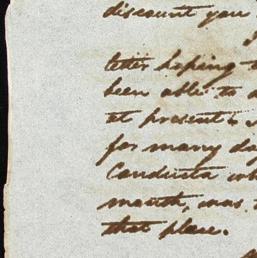 discount you
letter hoping t
been able to
at present
for many da
Conducta wh
month, was
that place.